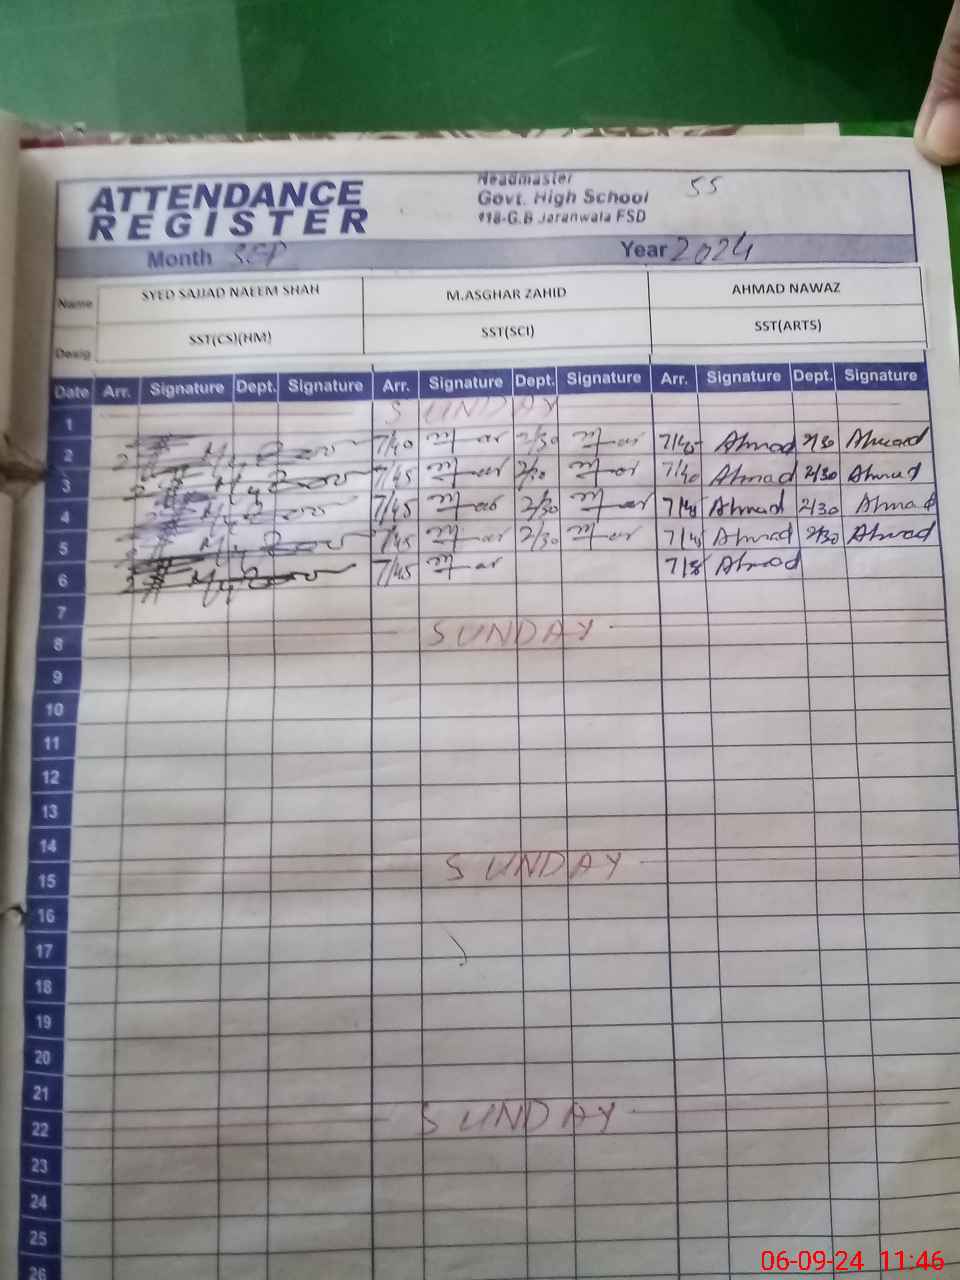 Headmaster
ATTENDANCE Govt. High School 55
REGISTER 118-G.B Jaranwala FSD
Month SEP Year 2024
Name SYED SAJJAD NAEEM SHAH M.ASGHAR ZAHID AHMAD NAWAZ
Desig SST(CS)(HM) SST(SCI) SST(ARTS)
Date Arr. Signature Dept. Signature Arr. Signature Dept. Signature Arr. Signature Dept. Signature
1 SUNDAY
2 7/40 2/30 7/40 Ahmad 2/30 Ahmad
3 7/45 2/30 7/40 Ahmad 2/30 Ahmad
4 7/45 2/30 Ahmad 2/30 Ahmad
5 7/45 2/30 Ahmad 2/30 Ahmad
6 7/45 Ahmad
7
8 SUNDAY
9
10
11
12
13
14
15 SUNDAY
16
17
18
19
20
21
22 SUNDAY
23
24
25
26
06-09-24 11:46